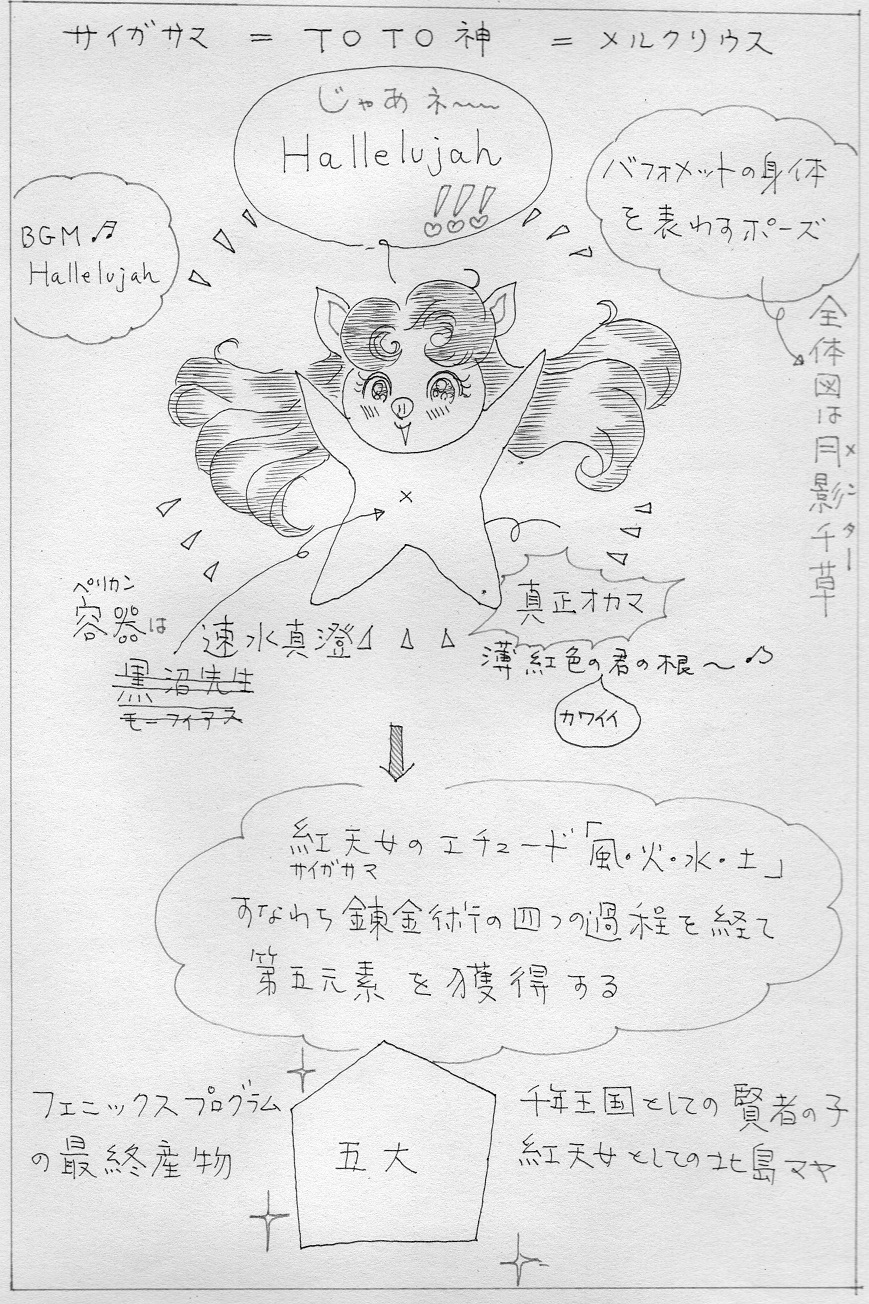 サイガサマ = TOTO神 = メルクリウス
じゃあネ〜〜
Hallelujah
!!!
バフォメットの身体
を表わすポーズ
BGM♬
Hallelujah
全体図は月影千草
メンター
ペリカン
容器は
速水真澄
黒沼先生
モーフィアス
真正オカマ
薄紅色の君の根〜♪
カワイイ
紅天女のエチュード「風・火・水・土」
サイガサマ
すなわち錬金術の四つの過程を経て
第五元素を獲得する
フェニックスプログラム
の最終産物
五大
千年王国としての賢者の子
紅天女としての北島マヤ